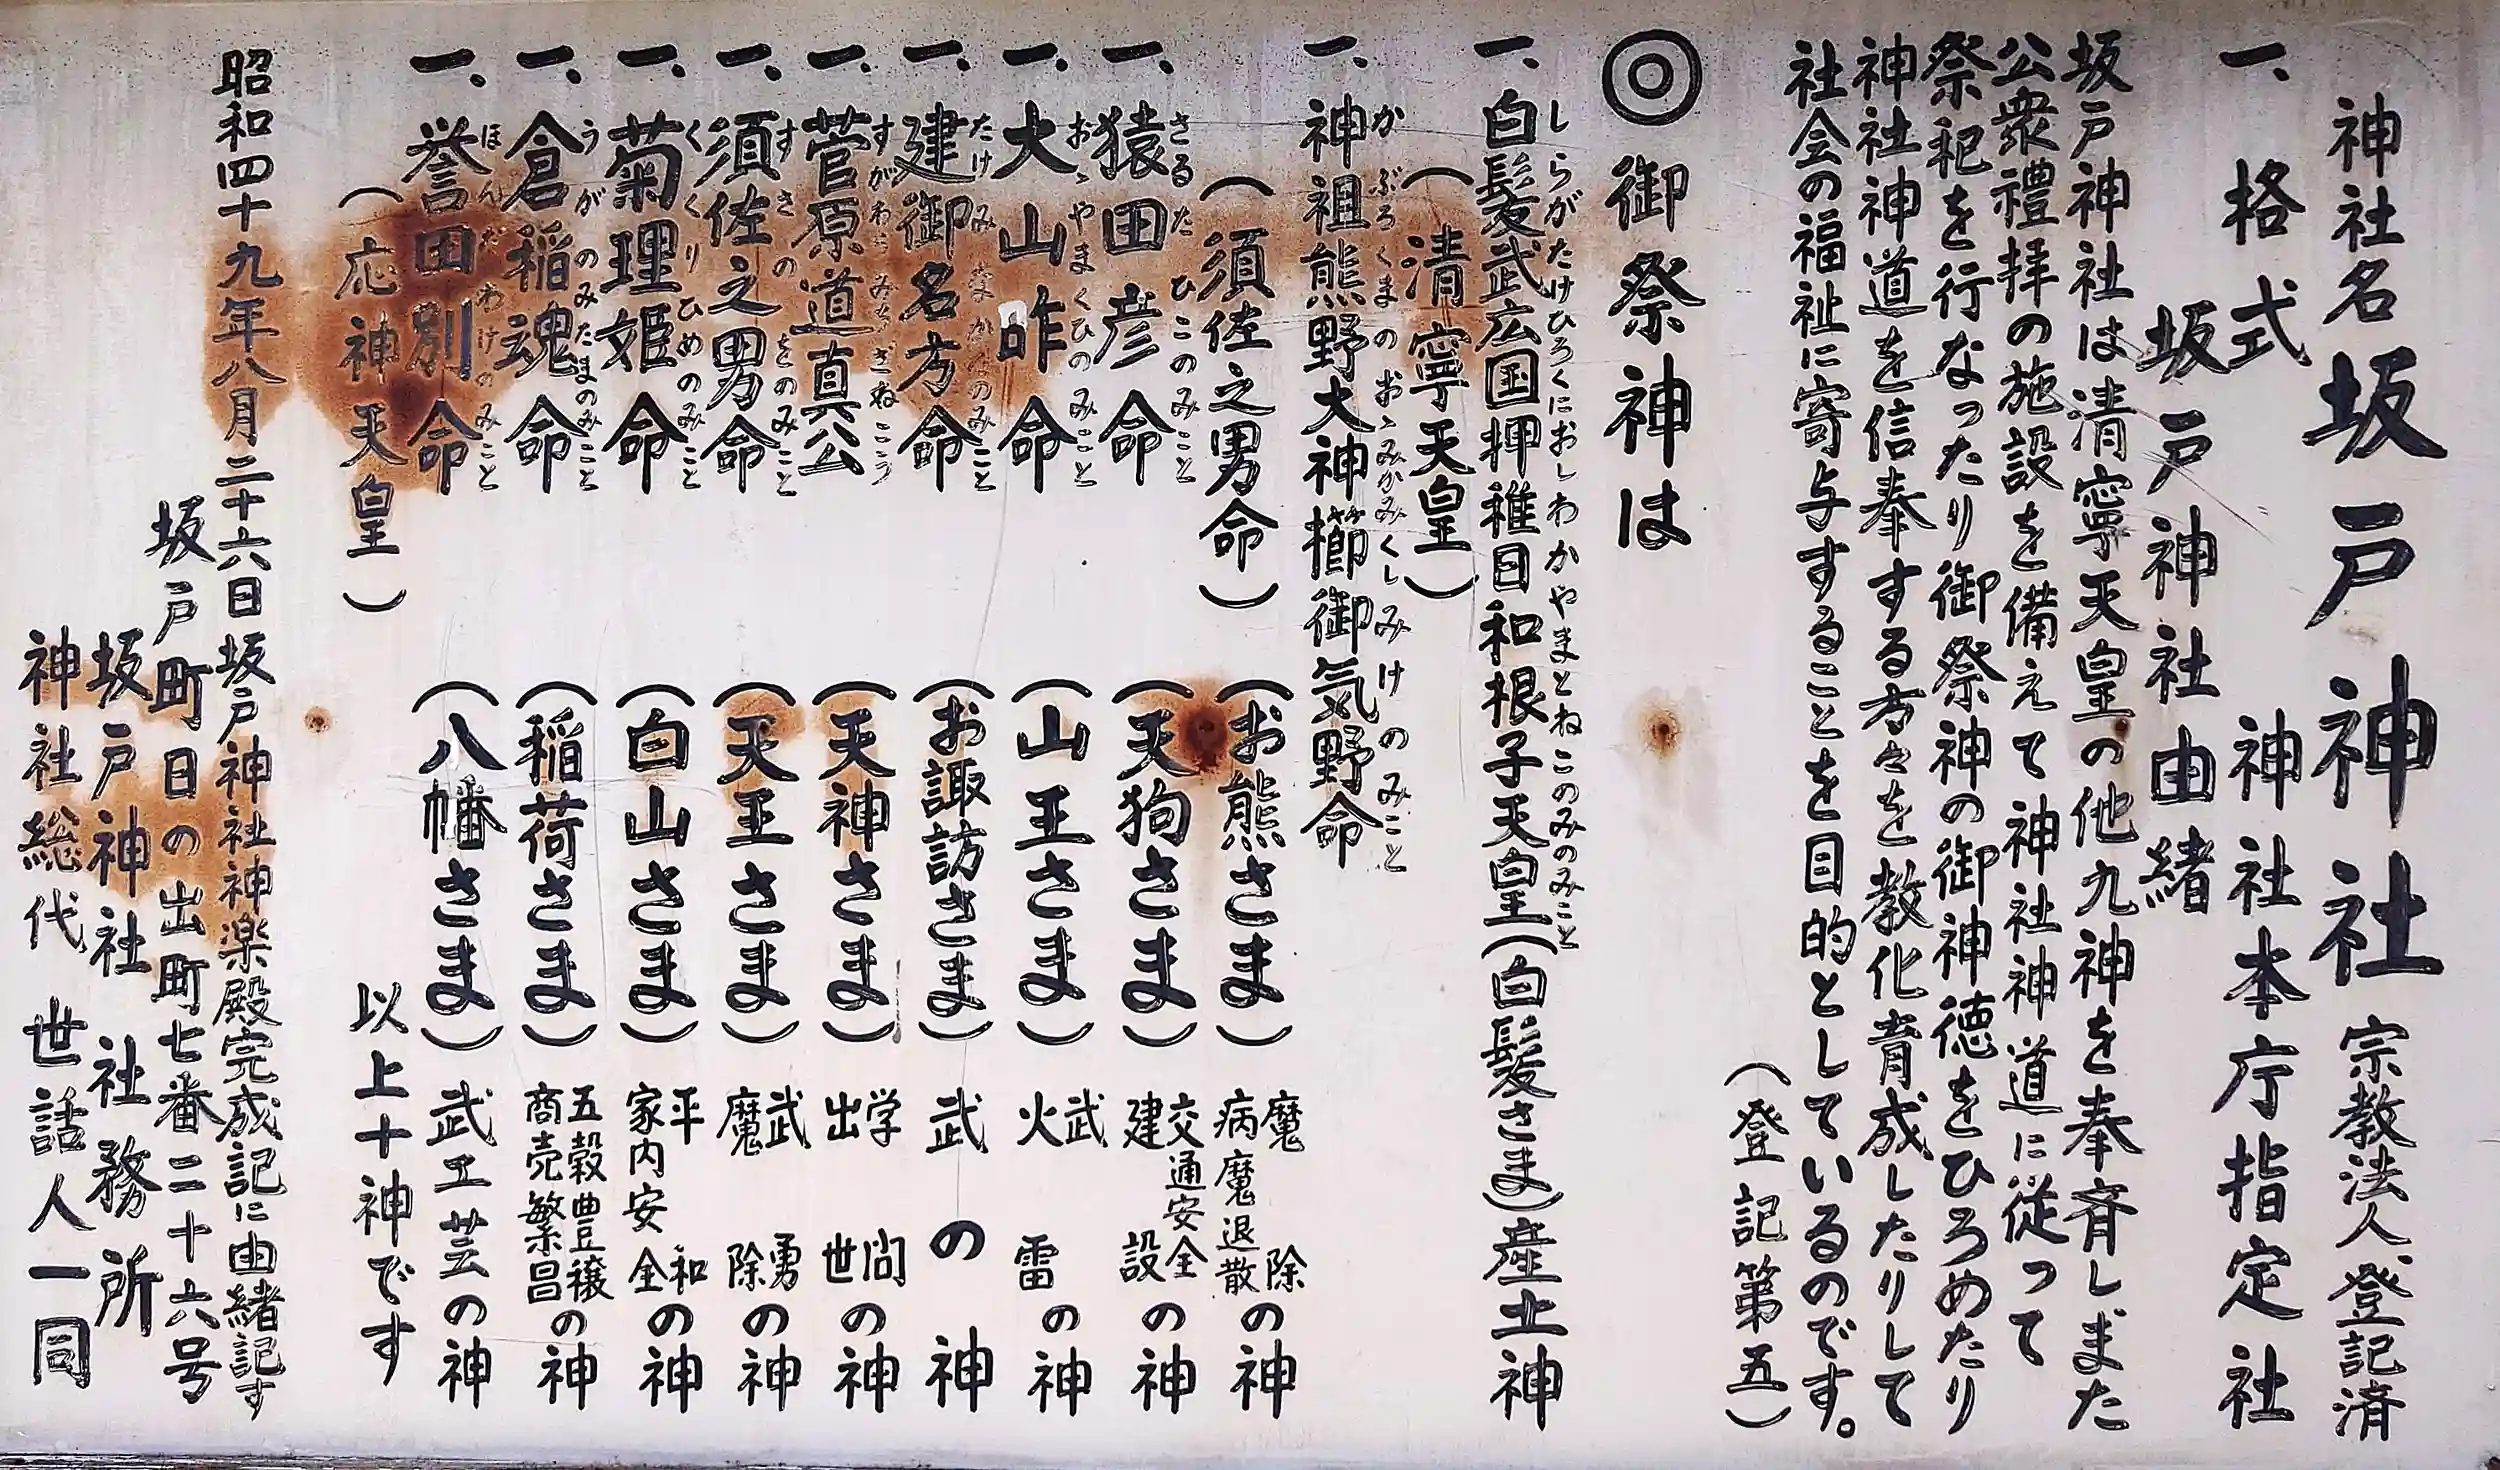 神社名 坂戸神社 宗教法人、登記済
一、格式 神社本庁指定社
坂戸神社由緒
坂戸神社は清寧天皇の他九神を奉斉しまた
公衆禮拝の施設を備えて神社神道に従って
祭祀を行なったり御祭神の御神徳をひろめたり
神社神道を信奉する方々を教化育成したりして
社会の福祉に寄与することを目的としているのです。
(登記第五)
◎御祭神は
しらがたけひろくにおしわかやまとねこのみのみこと
一、白髪武広国押稚日和根子天皇(白髪さま)産土神
(清寧天皇)
かぶろくまのおゝみかみくしみけのみこと
一、神祖熊野大神櫛御気野命
(須佐之男命) (お熊さま) 魔除病魔退散の神
さるたひこのみこと
一、猿田彦命 (天狗さま) 交通安全建設の神
おゝやまくひのみこと
一、大山咋命 (山王さま) 武火雷の神
たけみなかたのみこと
一、建御名方命 (お諏訪さま) 武の神
すがわらみちざねこう
一、菅原道真公 (天神さま) 学問出世の神
すさのをのみこと
一、須佐之男命 (天王さま) 武勇魔除の神
くくりひめのみこと
一、菊理姫命 (白山さま) 平和家内安全の神
うがのみたまのみこと
一、倉稲魂命 (稲荷さま) 五穀豊穣商売繁昌の神
ほんだわけのみこと
一、誉田別命 (八幡さま) 武工芸の神
(応神天皇) 以上十神です
昭和四十九年八月二十六日坂戸神社神楽殿完成記に由緒記す
坂戸町日の出町七番二十六号
坂戸神社 社務所
神社総代 世話人一同